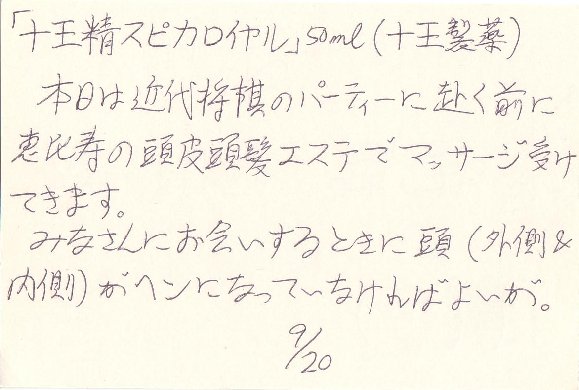 「十王精スピカロイヤル」50ml(十王製薬)
本日は近代将棋のパーティーに赴く前に
恵比寿の頭皮頭髪エステでマッサージ受け
てきます。
みなさんにお会いするときに頭(外側&
内側)がヘンになっていなければよいが。
9/20